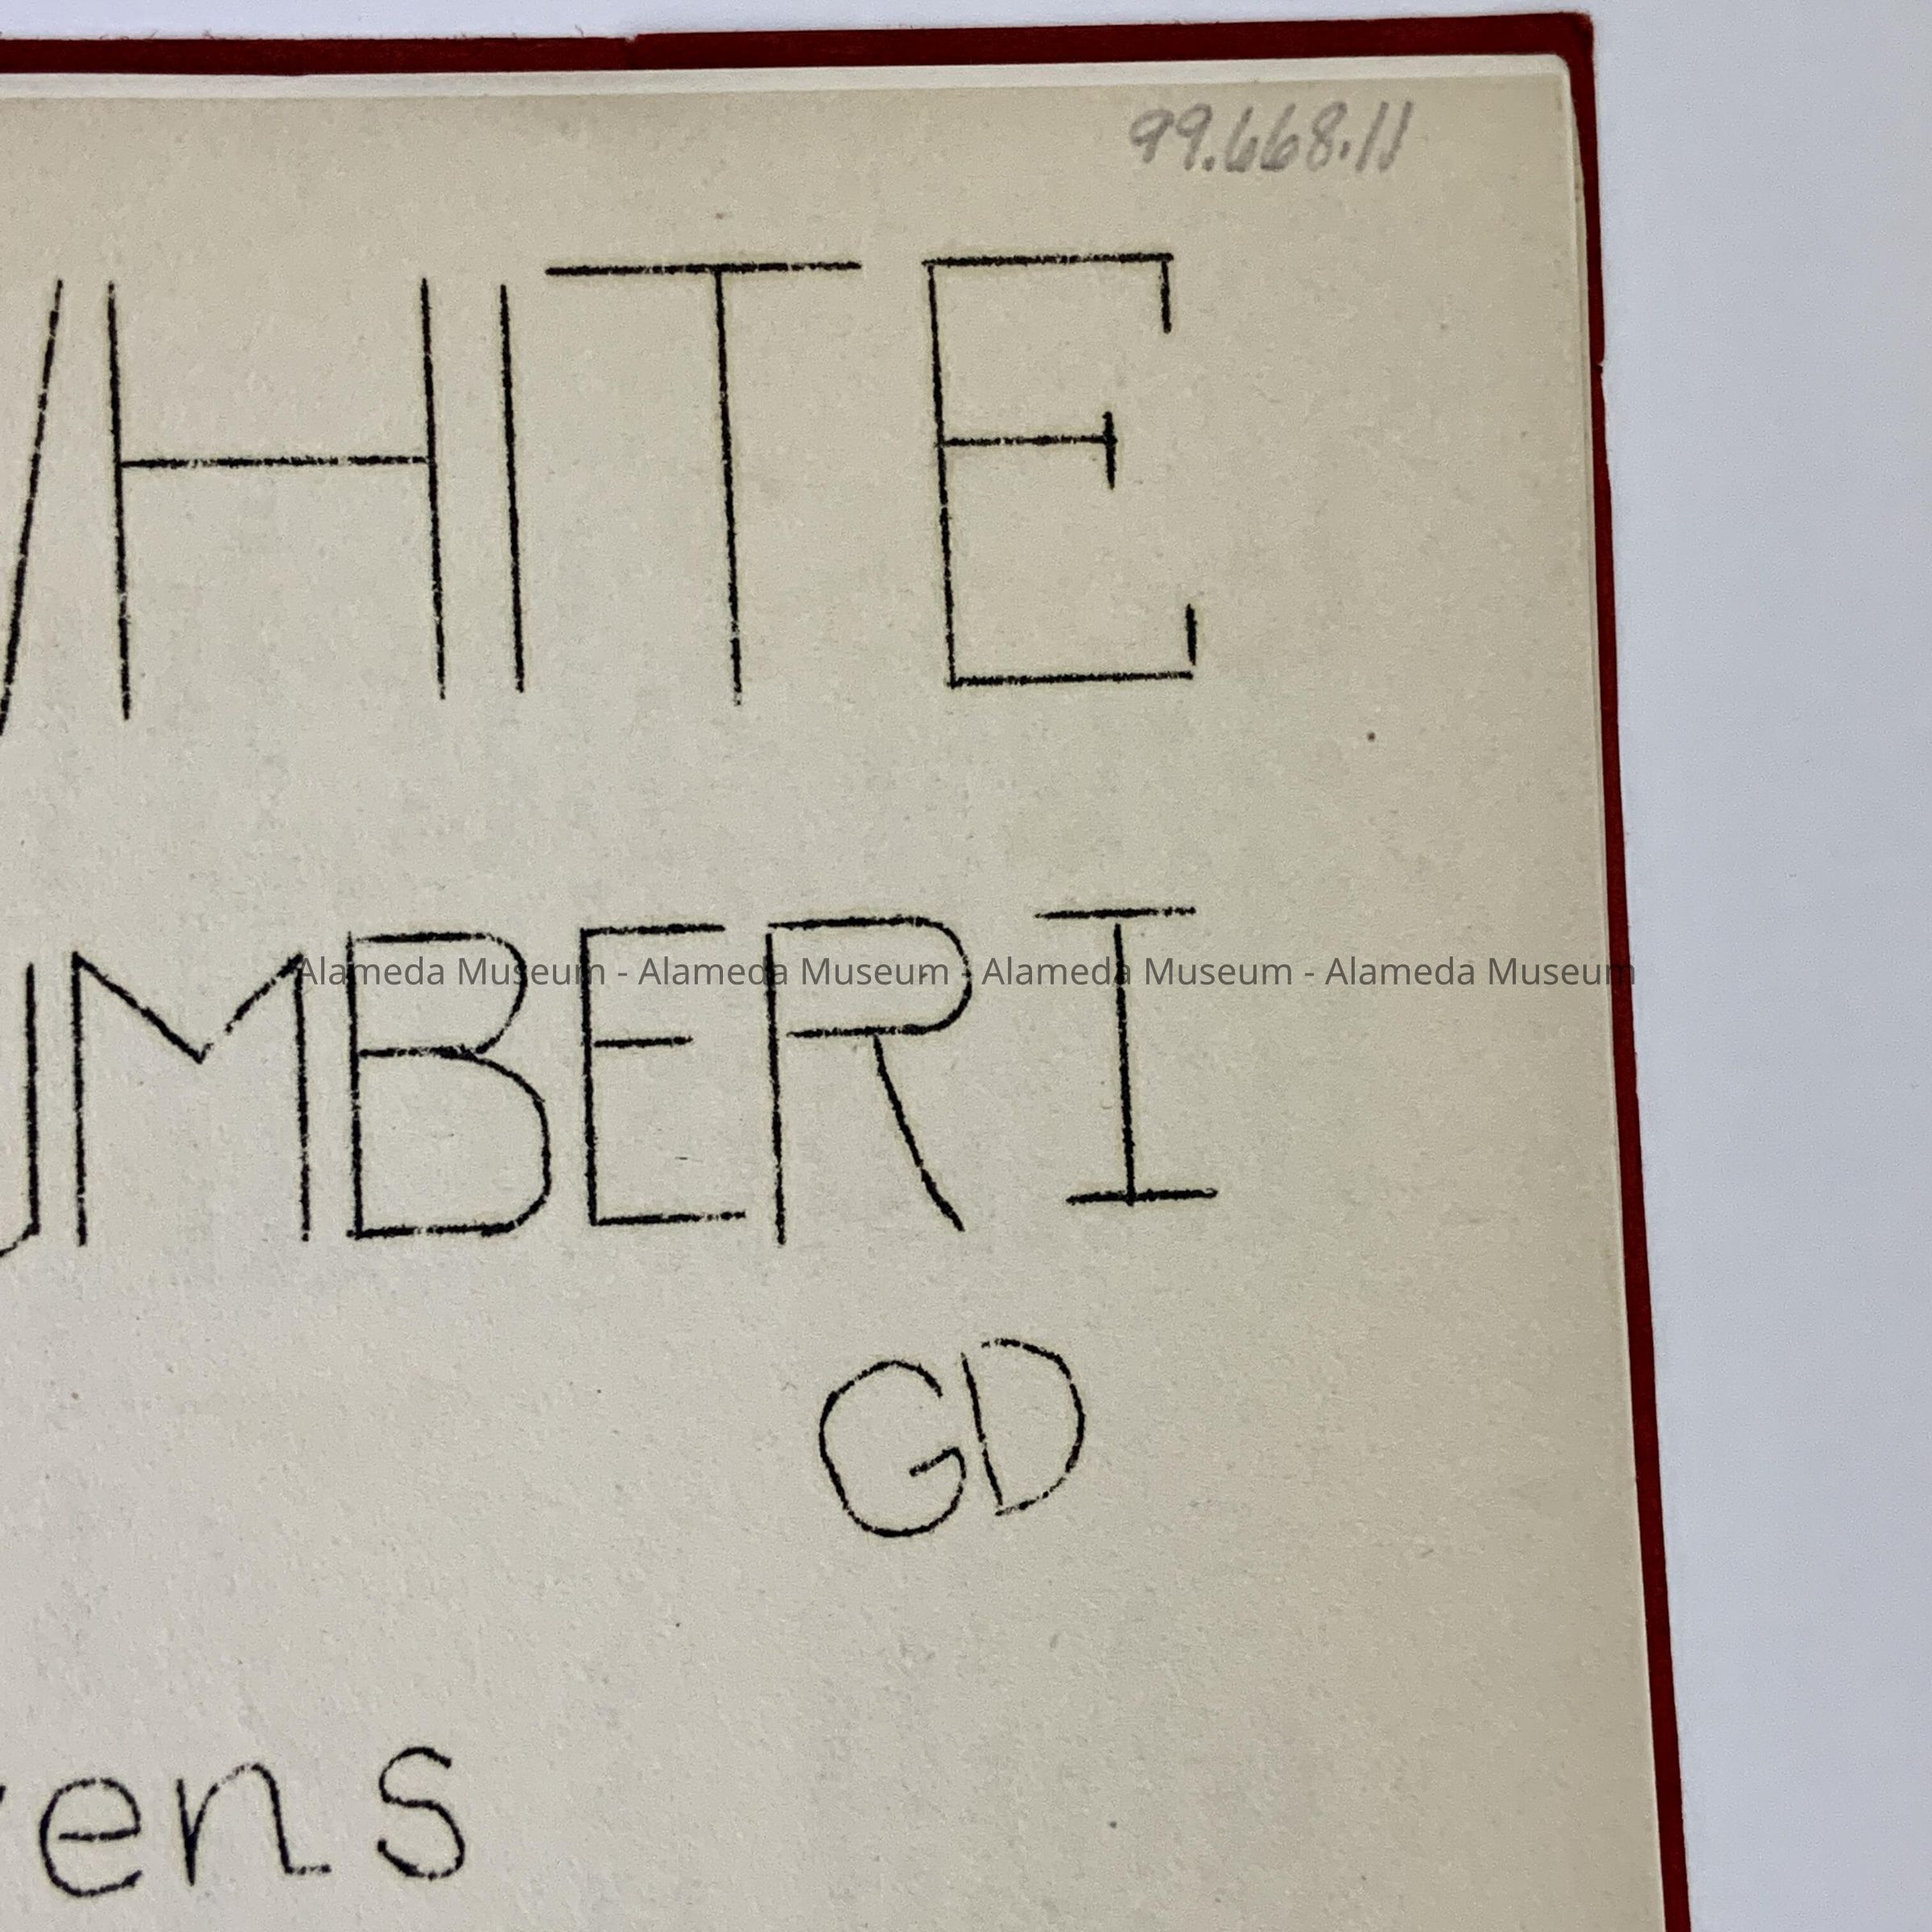 99.668.11
WHITE
UMBERI
Alameda Museum - Alameda Museum - Alameda Museum - Alameda Museum
GD
ens